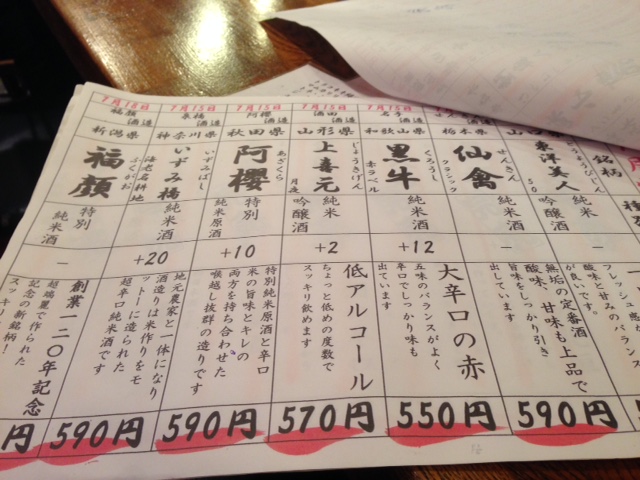 銘柄
東洋美人
50
純米
吟醸酒
－
無垢の定番酒
酸味、甘味も上品で
旨味をしっかり引き
出ています
590円
栃木県
せんきん
仙禽
クラシック
－
7月15日
名手
酒造
和歌山県
くろうし
黒牛
赤ラベル
純米酒
+12
大辛口の赤
五味のバランスがよく
辛口でしっかり味も
出ています
550円
7月15日
酒田
酒造
山形県
じょうきげん
上喜元
月夜
純米
吟醸酒
+2
低アルコール
ちょっと低めの度数で
スッキリ飲めます
570円
7月15日
阿櫻
酒造
秋田県
あざくら
阿櫻
特別
純米原酒
+10
特別純米原酒と辛口
米の旨味とキレの
両方を持ち合わせた
喉越し抜群の造りです
590円
7月15日
泉橋
酒造
神奈川県
いずみばし
いづみ橋
海老名耕地
純米酒
+20
地元農家と一体になり
酒造りは米作りをモ
ットーに造られた
超辛口純米酒です
590円
7月18日
福顔
酒造
新潟県
ふくがお
福顔
特別
純米酒
－
創業一二〇年記念
超端麗で作られた
記念の新銘柄！
スッキリ
円